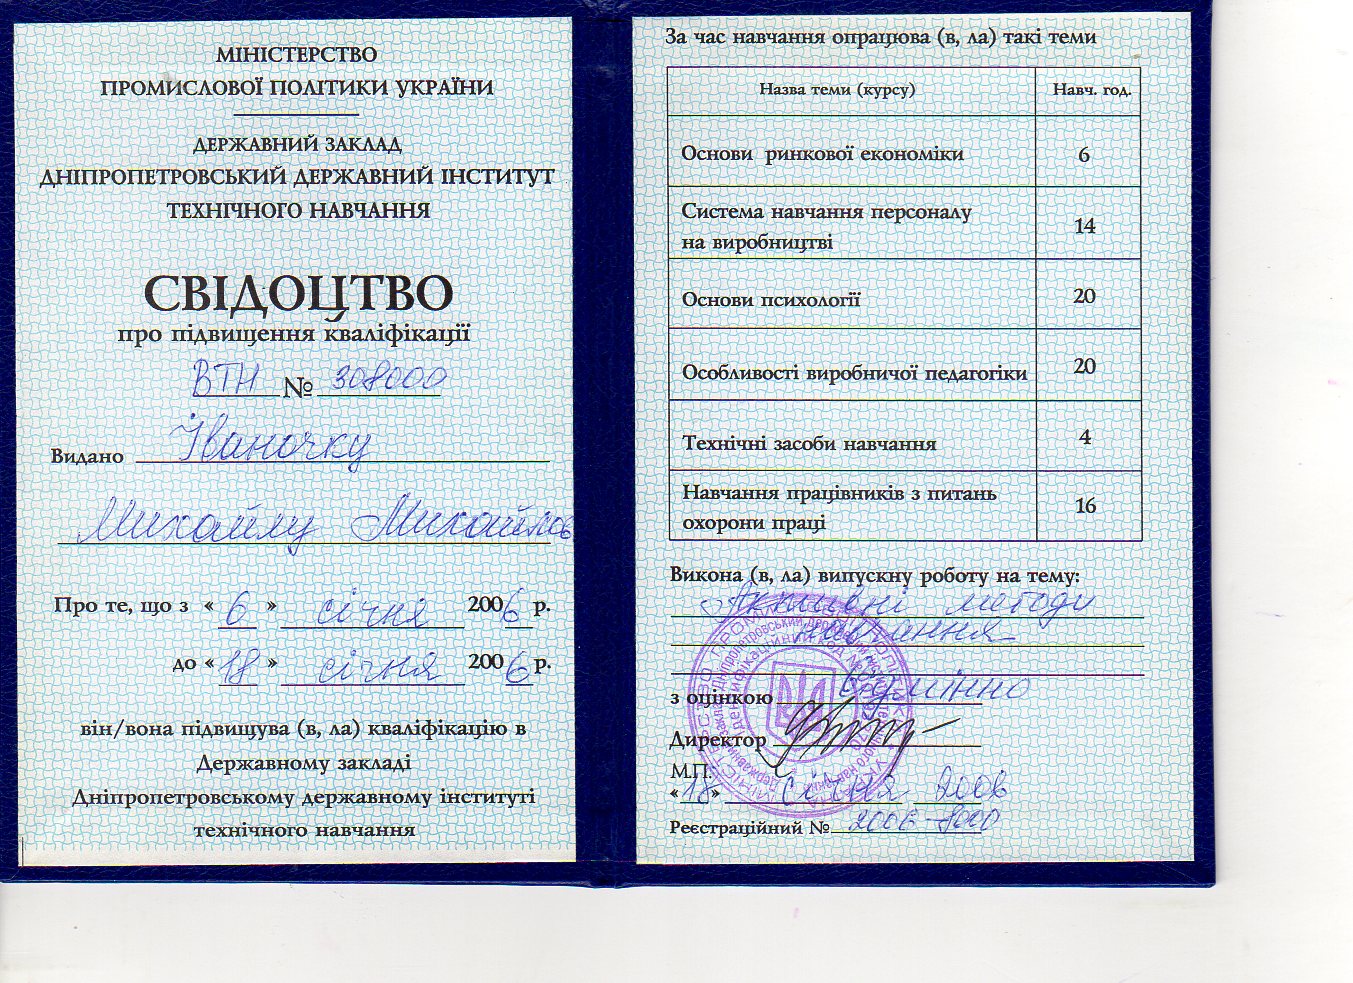 МІНІСТЕРСТВО
ПРОМИСЛОВОЇ ПОЛІТИКИ УКРАЇНИ
ДЕРЖАВНИЙ ЗАКЛАД
ДНІПРОПЕТРОВСЬКИЙ ДЕРЖАВНИЙ ІНСТИТУТ
ТЕХНІЧНОГО НАВЧАННЯ
СВІДОЦТВО
про підвищення кваліфікації
ВТН № 308000
Видано Іваночку
Михайлу Михайлов
Про те, що з « 6 » січня 2006 р.
до « 18 » січня 2006 р.
він/вона підвищува (в, ла) кваліфікацію в
Державному закладі
Дніпропетровському державному інституті
технічного навчання
За час навчання опрацюва (в, ла) такі теми
Назва теми (курсу) Навч. год.
Основи ринкової економіки 6
Система навчання персоналу
на виробництві 14
Основи психології 20
Особливості виробничої педагогіки 20
Технічні засоби навчання 4
Навчання працівників з питань
охорони праці 16
Викона (в, ла) випускну роботу на тему:
Активні методи
навчання
з оцінкою відмінно
Директор
М.П.
« 18 » січня 2006
Реєстраційний № 2006-8000